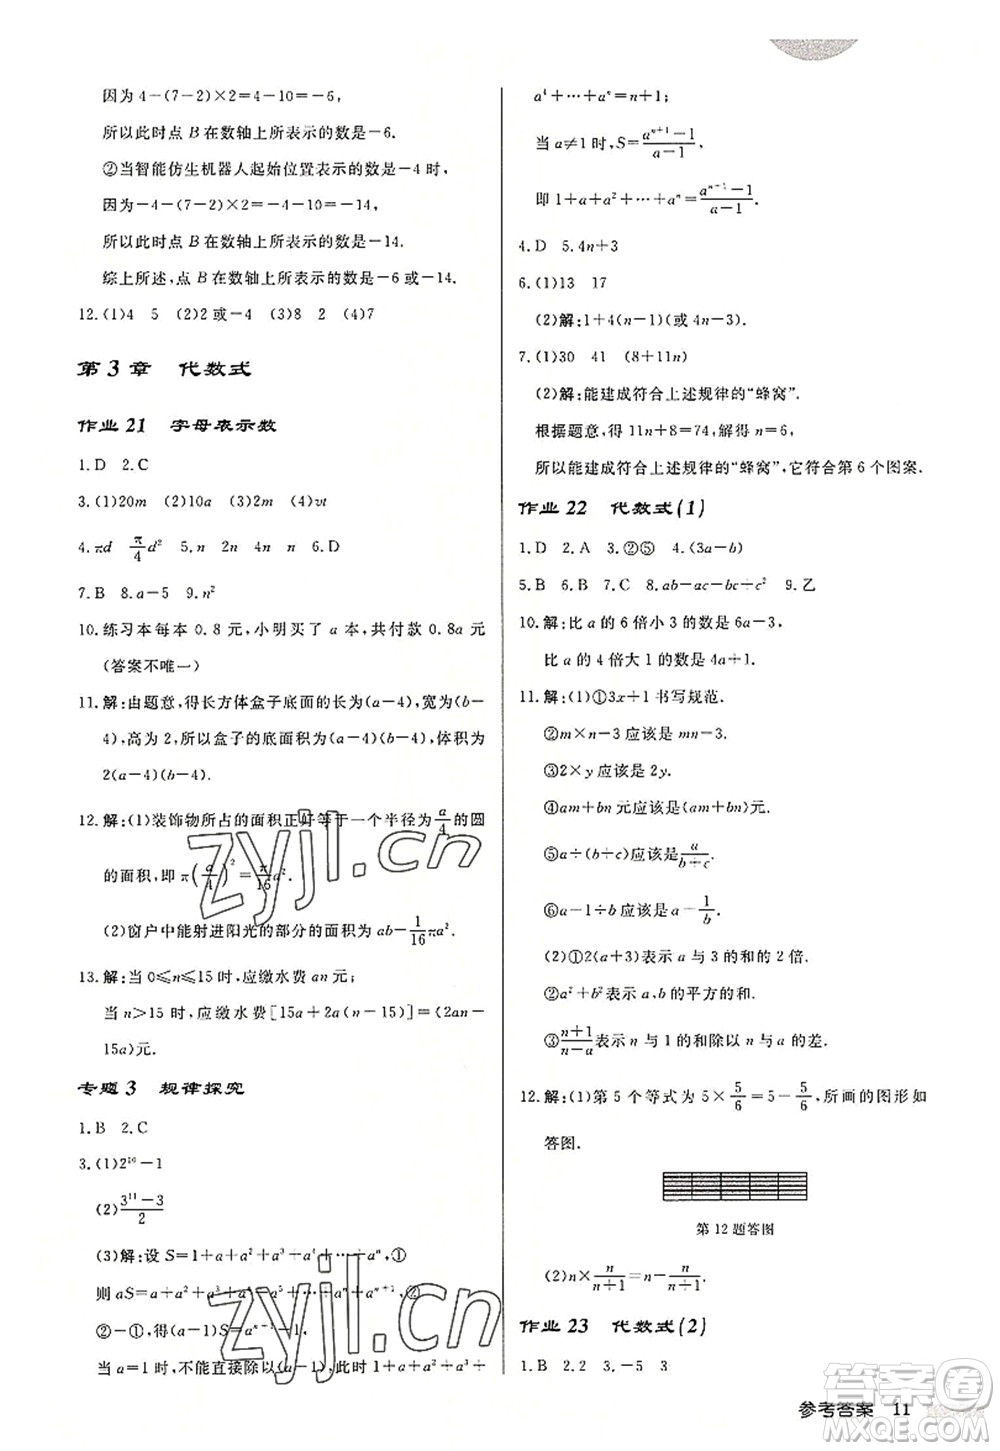 因为4-(7-2)×2=4-10=-6,
所以此时点B在数轴上所表示的数是-6.
②当智能仿生机器人起始位置表示的数是-4时,
因为-4-(7-2)×2=-4-10=-14,
所以此时点B在数轴上所表示的数是-14.
综上所述,点B在数轴上所表示的数是-6或-14.
12.(1)4 5 (2)2或-4 (3)8 2 (4)7
第3章 代数式
作业21 字母表示数
1.D 2.C
3.(1)20m (2)10a (3)2n (4)vt
4.πd π/4 d² 5.n 2n n 6.D
7.B 8.a-5 9.n²
10.练习本每本0.8元,小明买了a本,共付款0.8a元
(答案不唯一)
11.解:由题意,得长方体盒子底面的长为(a-4),宽为(b-
4),高为2,所以盒子的底面积为(a-4)(b-4),体积为
2(a-4)(b-4).
12.解:(1)装饰物所占的面积正好等于一个半径为a/4的圆
的面积,即π(a/4)²=π/16 a².
(2)窗户中能射进阳光的部分的面积为ab-1/16 πa².
13.解:当0≤n≤15时,应缴水费an元;
当n>15时,应缴水费[15a+2a(n-15)]=(2an-
15a)元.
专题3 规律探究
1.B 2.C
3.(1)2¹⁰-1
(2)(3¹¹-3)/2
(3)解:设S=1+a+a²+a³+a⁴+…+aⁿ,①
则aS=a+a²+a³+a⁴+…+aⁿ+aⁿ⁺¹,②
②-①,得(a-1)S=aⁿ⁺¹-1,
当a=1时,不能直接除以(a-1),此时1+a+a²+a³+
a⁴+…+aⁿ=n+1;
当a≠1时,S=(aⁿ⁺¹-1)/(a-1),
即1+a+a²+…+aⁿ=(aⁿ⁺¹-1)/(a-1).
4.D 5.4n+3
6.(1)13 17
(2)解:1+4(n-1)(或4n-3).
7.(1)30 41 (8+11n)
(2)解:能建成符合上述规律的“蜂窝”.
根据题意,得11n+8=74,解得n=6,
所以能建成符合上述规律的“蜂窝”,它符合第6个图案.
作业22 代数式(1)
1.D 2.A 3.②⑤ 4.(3a-b)
5.B 6.B 7.C 8.ab-ac-bc+c² 9.乙
10.解:比a的6倍小3的数是6a-3,
比a的4倍大1的数是4a+1.
11.解:(1)①3x+1书写规范.
②m×n-3应该是mn-3.
③2×y应该是2y.
④am+bn元应该是(am+bn)元.
⑤a÷(b+c)应该是a/(b+c).
⑥a-1÷b应该是a-1/b.
(2)①2(a+3)表示a与3的和的2倍.
②a²+b²表示a、b的平方的和.
③(n+1)/(n-a)表示n与1的和除以n与a的差.
12.解:(1)第5个等式为5×5/6=5-5/6,所画的图形如
答图.
第12题答图
(2)n×n/(n+1)=n-n/(n+1).
作业23 代数式(2)
1.B 2.2 3.-5 3
参考答案 11
zyjl.cn
zyjl.cn
答案圈